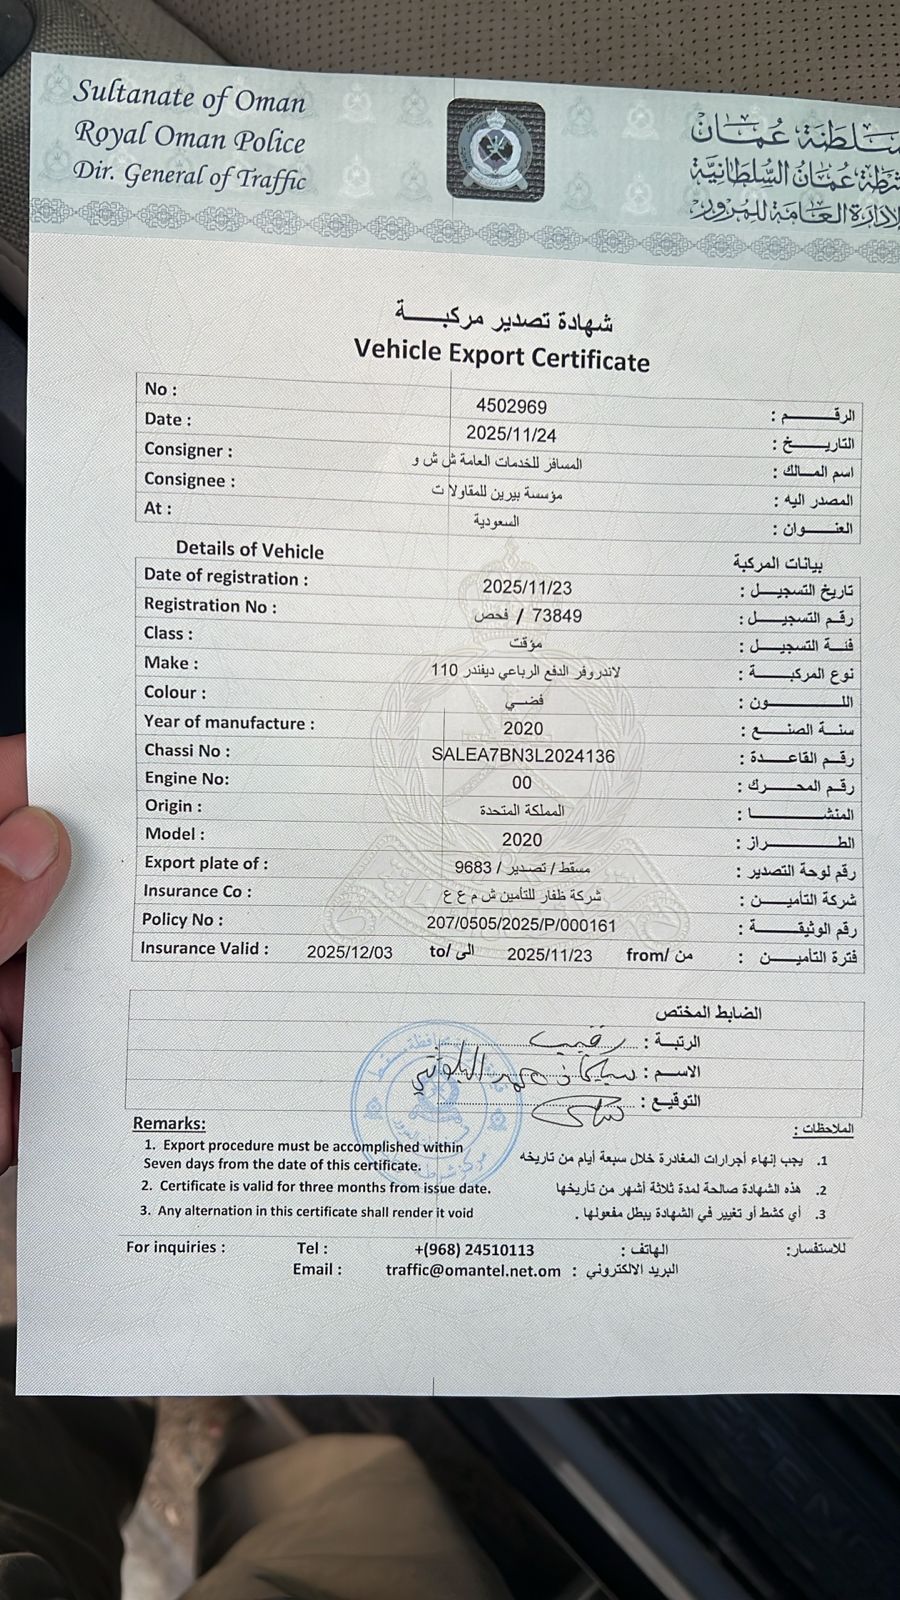 Sultanate of Oman
Royal Oman Police
Dir. General of Traffic
سلطنة عُمان
شرطة عُمان السُّلطانيَّة
الإدارة العامة للمرور
شهادة تصدير مركبـــــة
Vehicle Export Certificate
No : 4502969 الرقــــــــم :
Date : 2025/11/24 التاريـــــخ :
Consigner : المسافر للخدمات العامة ش ش و اسم المــالك :
Consignee : مؤسسة بيرين للمقاولات المصدر اليه :
At : السعودية العنـــــوان :
Details of Vehicle بيانات المركبة
Date of registration : 2025/11/23 تاريخ التسجيـــل :
Registration No : 73849 / فحص رقـم التسجيـــل :
Class : مؤقت فئــة التسجيـــل :
Make : لاندروفر الدفع الرباعي ديفندر 110 نوع المركبـــــة :
Colour : فضــي اللـــــــــون :
Year of manufacture : 2020 سنــة الصنـــع :
Chassi No : SALEA7BN3L2024136 رقــم القاعــدة :
Engine No: 00 رقـم المحـــرك :
Origin : المملكة المتحدة المنشـــــــــا :
Model : 2020 الطــــــــراز :
Export plate of : مسقط / تصدير / 9683 رقم لوحة التصدير :
Insurance Co : شركة ظفار للتأمين ش م ع ع شركة التأميـــن :
Policy No : 207/0505/2025/P/000161 رقم الوثيقــــــة :
Insurance Valid : 2025/12/03 to/ الى 2025/11/23 from/ من فترة التأميــــن :
الضابط المختص
الرتبـــة : رقيب
الاســـم : البلوشي
التوقيـع :
Remarks: الملاحظات :
1. Export procedure must be accomplished within
Seven days from the date of this certificate.
1. يجب إنهاء أجرارات المغادرة خلال سبعة أيام من تاريخه
2. Certificate is valid for three months from issue date.
2. هذه الشهادة صالحة لمدة ثلاثة أشهر من تأريخها
3. Any alternation in this certificate shall render it void
3. أي كشط أو تغيير في الشهادة يبطل مفعولها .
For inquiries : Tel : +(968) 24510113 الهاتف : للاستفسار:
Email : traffic@omantel.net.om البريد الالكتروني :